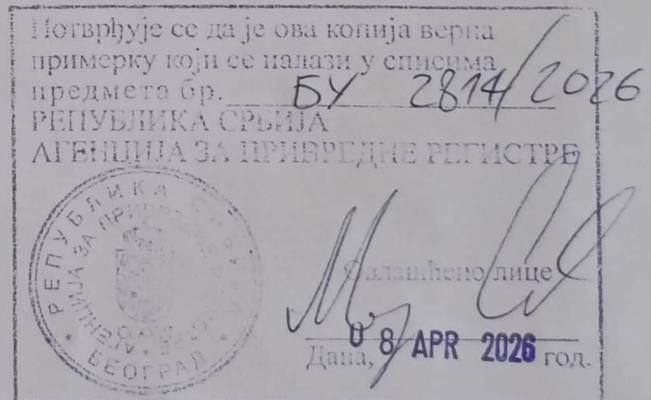 Потврђује се да је ова копија верна
примерку који се налази у списима
предмета бр. БУ 2814/2026
РЕПУБЛИКА СРБИЈА
АГЕНЦИЈА ЗА ПРИВРЕДНЕ РЕГИСТРЕ
РЕПУБЛИКА СРБИЈА
АГЕНЦИЈА ЗА ПРИВРЕДНЕ РЕГИСТРЕ
БЕОГРАД
Овлашћено лице
Дана, 08 APR 2026 год.